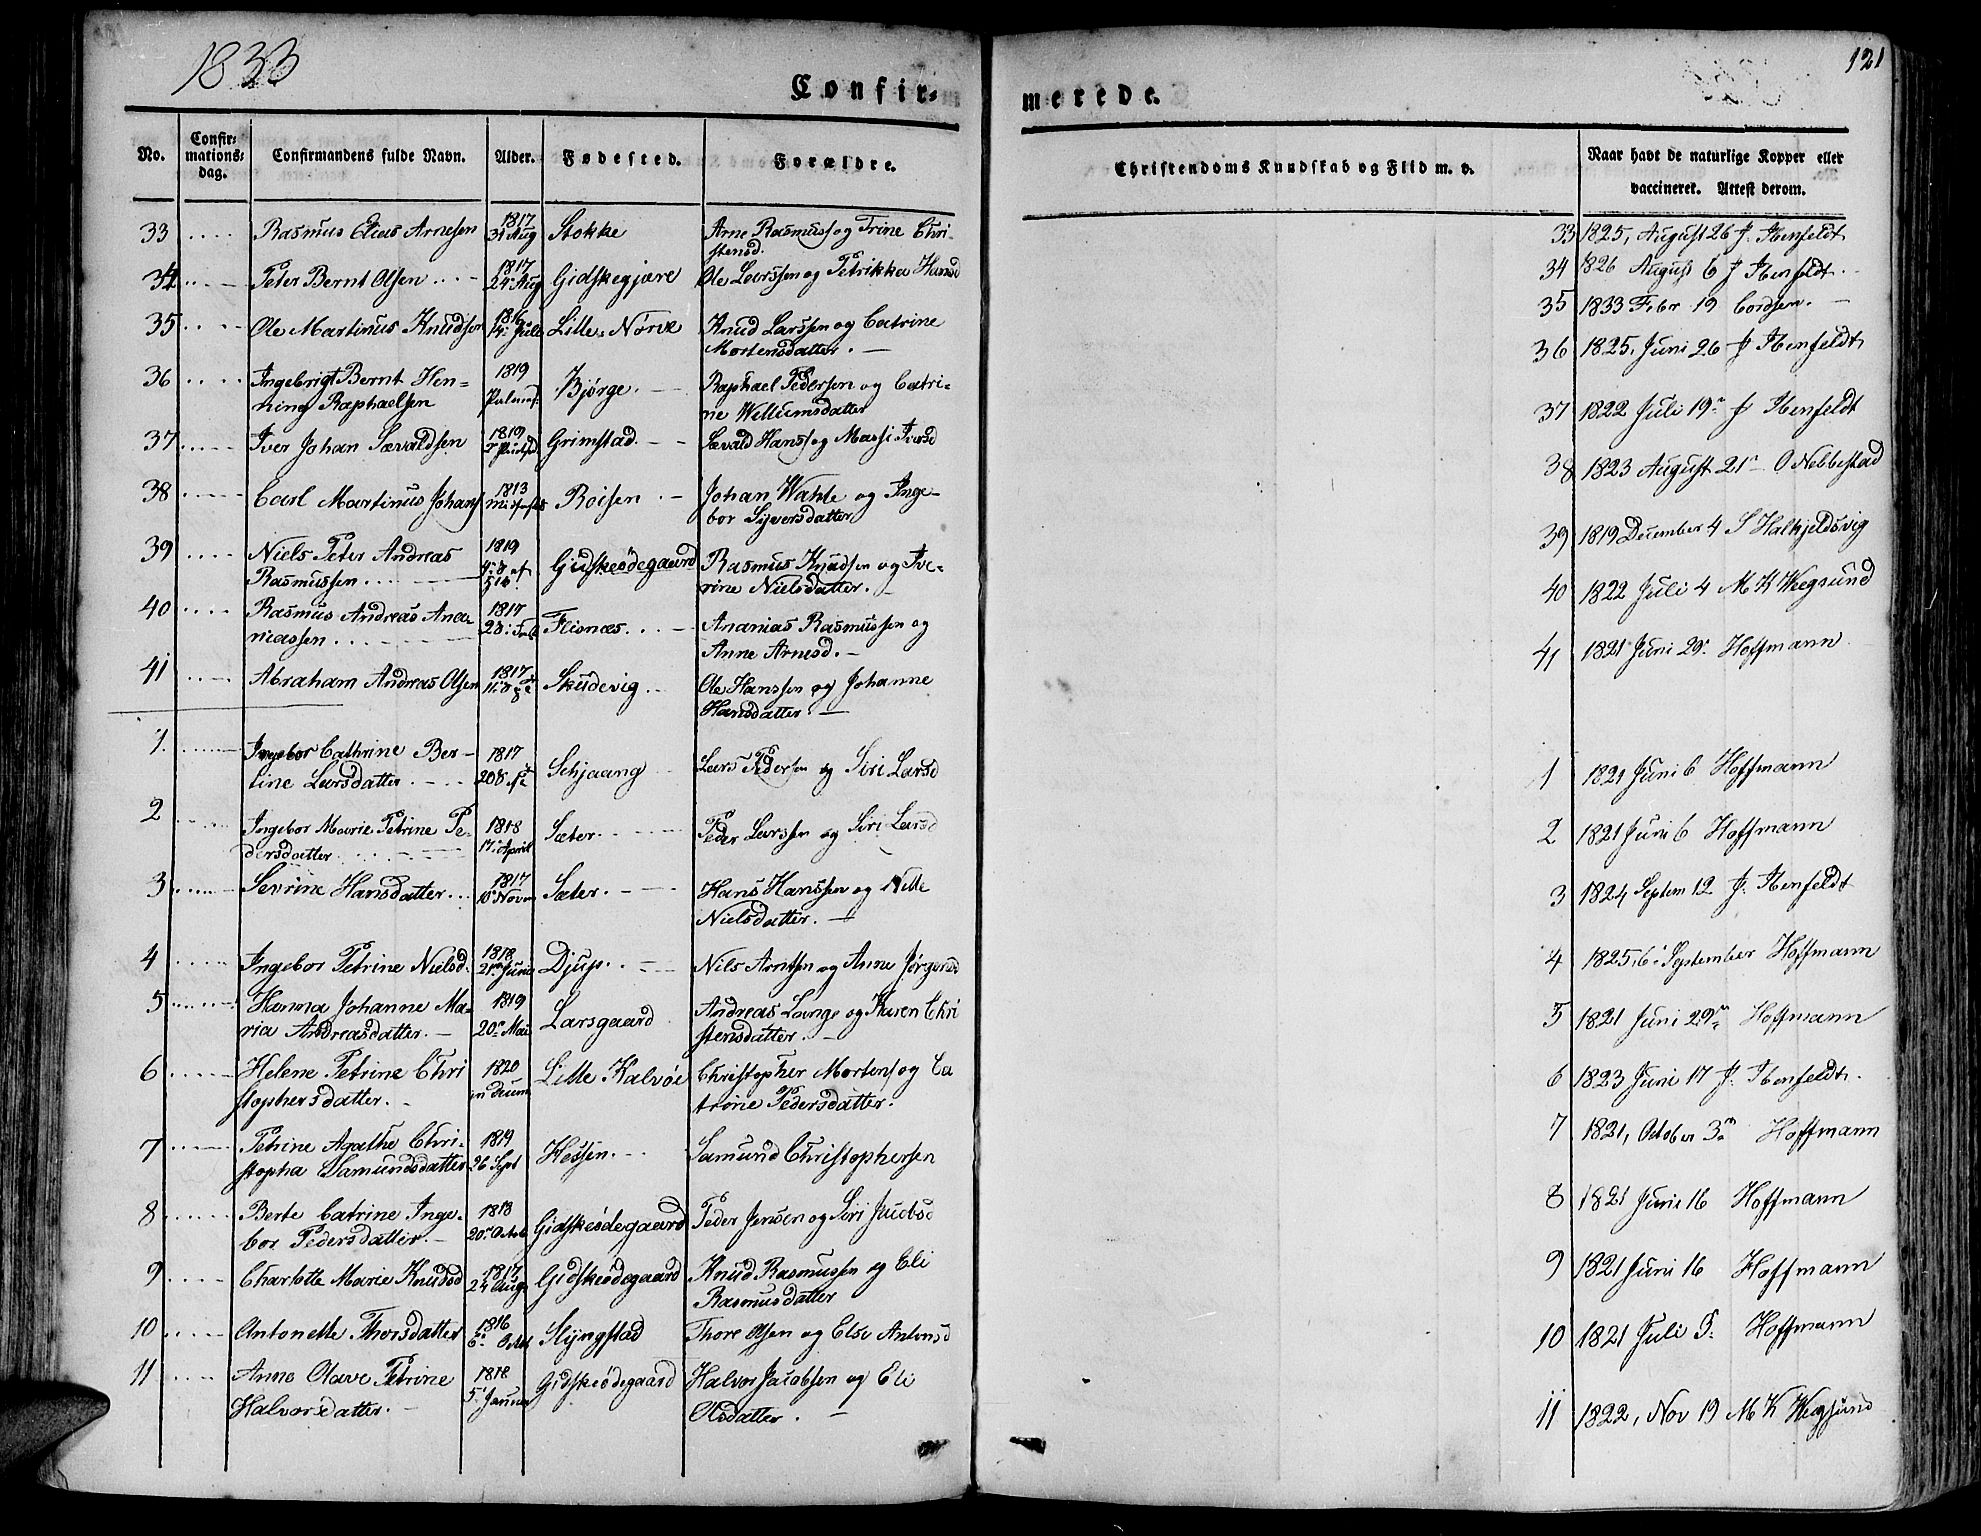 1833
121
Confir-
merede.
No.
Confir-
mations-
dag.
Confirmandens fulde Navn.
Alder.
Fødested.
Forældre.
Christendoms Kundskab og Flid m. v.
Naar havt de naturlige Kopper eller
vaccineret. Attest derom.
33 Rasmus Elias Arnesen 1817 31 Aug Stokke Arne Rasmuss og Trine Chri-
stensd.
34 Peter Bernt Olsen 1817 24 Aug Gidskegjære Ole Larssen og Petrikka Hansd
35 Ole Martinus Knudsen 1816 14 Juli Lille Nørve Knud Larssen og Catrine
Mortensdatter.
36 Ingebrigt Bernt Hen-
ning Raphaelsen 1819 Bjørge Raphael Pedersen og Catri-
ne Wellumsdatter
37 Iver Johan Sævaldsen 1819 Grimstad Sævald Hanss og Massi Iversd
38 Carl Martinus Johans 1813 Roisen Johan Wahle og Inge-
bor Syversdatter
39 Niels Peter Andreas
Rasmussen 1819 Gidskeødegaard Rasmus Knudsen og Ive-
rine Nielsdatter.
40 Rasmus Andreas Ana-
niassen 1817 28 Feb Flisnæs Ananias Rasmussen og
Anne Arnesd.
41 Abraham Andreas Olsen 1817 Skudevig Ole Hanssen og Johanne
Hansdatter
1 Ingebor Cathrine Ber-
tine Larsdatter 1817 Schjaang Lars Pedersen og Siri Larsd
2 Ingebor Marie Petrine Pe-
dersdatter 1818 17 April Sæter Peder Larssen og Siri Larsd
3 Sevrine Hansdatter 1817 10 Novem Sæter Hans Hanssen og Nille
Nielsdatter.
4 Ingebor Petrine Nielsd. 1818 21 Juni Djup Nils Arntsen og Anne Jørgensd
5 Hanna Johanne Ma-
ria Andreasdatter. 1819 20 Mai Larsgaard Andreas Lange og Karen Chri
stensdatter.
6 Helene Petrine Chri
stophersdatter. 1820 Lille Kalvøe Christopher Mortens og Ca
trine Pedersdatter.
7 Petrine Agathe Chri-
stopha Samundsdatter 1819 26 Sept Hessen Samund Christophersen
8 Berte Catrine Inge-
bor Pedersdatter. 1818 20 Octob Gidskeødegaard Peder Jensen og Siri Jacobsd
9 Charlotte Marie Knudsd 1817 24 Aug Gidskeødegaard Knud Rasmussen og Eli
Rasmusdatter
10 Antonette Thorsdatter 1816 6 Oct Slyngstad Thore Olsen og Else Antonsd
11 Anne Olave Petrine
Halvorsdatter. 1818 5 Januar Gidskeødegaard Halvor Jacobsen og Eli
Olsdatter.
33 1825, August 26 J. Ibenfeldt
34 1826 August 6 J Ibenfeldt
35 1833 Febr 19 Cordsen.
36 1825, Juni 26 J Ibenfeldt
37 1822 Juli 19 J Ibenfeldt
38 1823 August 21 O Nebbestad
39 1819 December 4 S Halkjeldsvig
40 1822 Juli 4 M K Weegsund
41 1821 Juni 29 Hoffmann
1 1821 Juni 6 Hoffmann
2 1821 Juni 6 Hoffmann
3 1824 Septem 12 J. Ibenfeldt
4 1825, 6 September Hoffmann
5 1821 Juni 29 Hoffmann
6 1823 Juni 17 J. Ibenfeldt.
7 1821, October 3 Hoffmann
8 1821 Juni 16 Hoffmann
9 1821 Juni 16 Hoffmann
10 1821 Juli 5 Hoffmann
11 1822, Nov 19 M K Wegsund